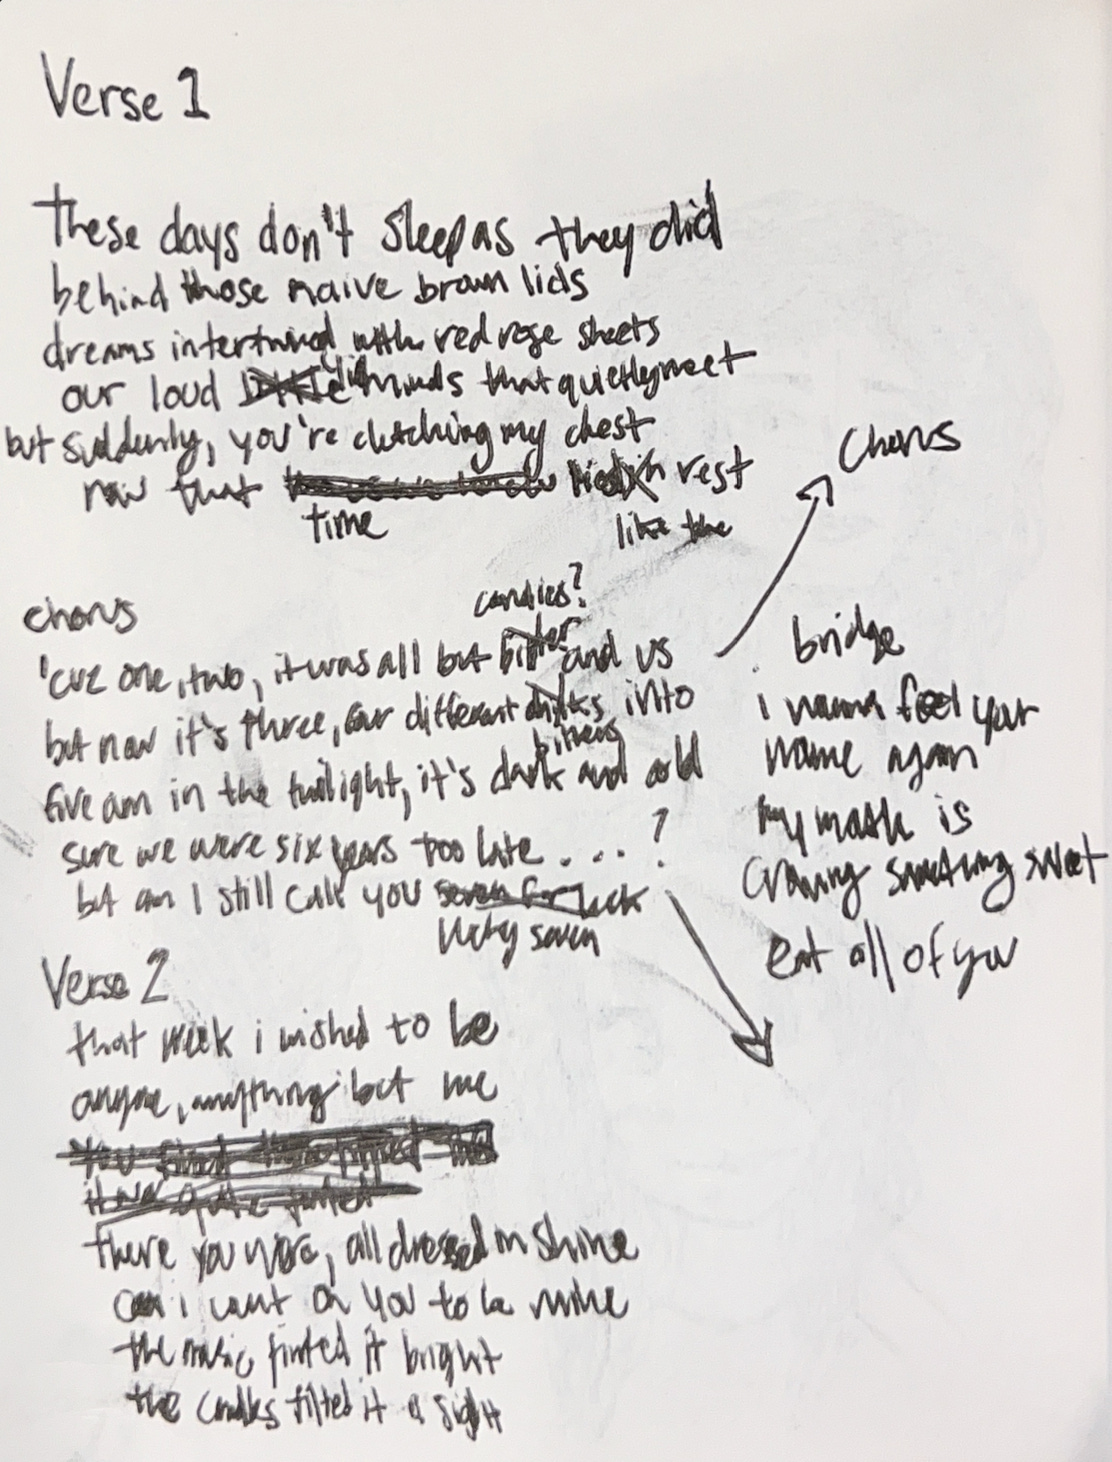 Verse 1
These days don't sleep as they did
behind those naive brown lids
dreams intertwined with red rose sheets
our loud minds that quietly meet
but suddenly, you're clutching my chest
now that rest
time
like the
chorus
candies?
'cuz one, two, it was all but bitter and us
but now it's three, four different drinks into
bitters
five am in the twilight, it's dark and cold
sure we were six years too late ....?
but can I still call you seven for luck
lucky seven
Verse 2
that week i wished to be
anyone, anything but me
there you were, all dressed in shine
can i count on you to be mine
the music tinted it bright
the candles tilted it a sight
Chorus
bridge
i wanna feel your
name again
my mask is
craving something sweet
eat all of you